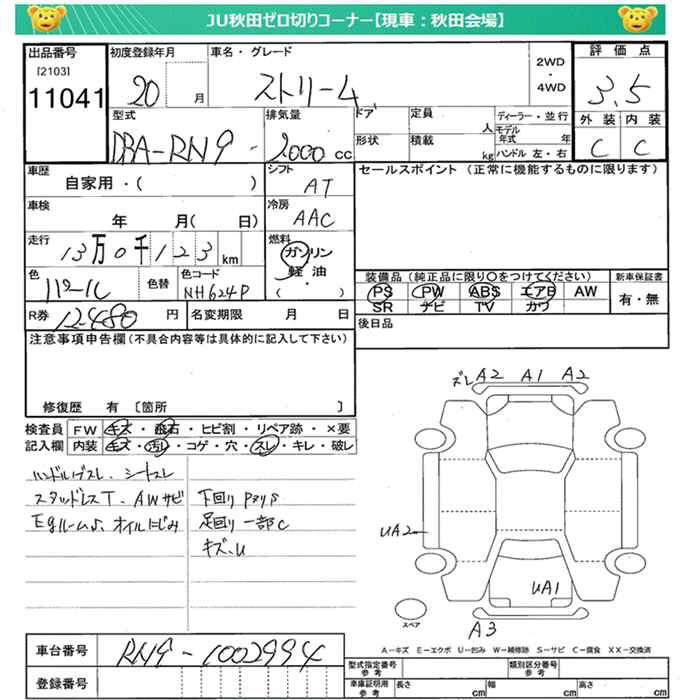 JU秋田ゼロ切りコーナー【現車：秋田会場】
出品番号
[2103]
11041
初度登録年月
20 月
車名・グレード
ストリーム
2WD
・
4WD
評価点
3.5
外装 内装
C C
型式
DBA-RN9
排気量
2000 cc
ドア
形状
定員 人
積載 kg
ディーラー・並行
モデル年式 年
ハンドル 左・右
車歴
自家用・( )
シフト
AT
セールスポイント (正常に機能するものに限ります)
車検
年 月( 日)
冷房
AAC
走行
13万0千123km
燃料
ガソリン
軽油
( )
色
パール
色替
色コード
NH624P
装備品(純正品に限り〇をつけてください)
PS PW ABS エアB AW
SR ナビ TV カワ
新車保証書
有・無
R券 12480 円
名変期限 月 日
後日品
注意事項申告欄(不具合内容等は具体的に記入して下さい)
修復歴 有 〔箇所 〕
検査員記入欄
FW キズ・飛石・ヒビ割・リペア跡・×要
内装 キズ・汚レ・コゲ・穴・スレ・キレ・破レ
ハンドルスレ、シートスレ
スタッドレスT、AWサビ
Egルーム、オイルにじみ
下回りPタリS
足回り一部C
キズ、U
ズレ A2 A1 A2
UA2
UA1
A3
スペア
A－キズ E－エクボ U－凹み W－補修跡 S－サビ C－腐食 XX－交換済
車台番号 RN9-1002994
登録番号
型式指定番号 参考
類別区分番号 参考
車庫証明用 参考
長さ cm 幅 cm 高さ cm